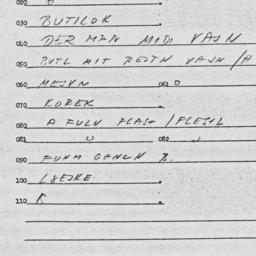 020
030 BUTILOK
040 DER MAN MIDI VAJN
050 BUTL MIT REJTN VAJN /A
060 MEJVN 061 O
070 KOREK
080 A FULN FLASH /FLESL
081 U 082 U
090 FUNM GANCN B.
100
110 K